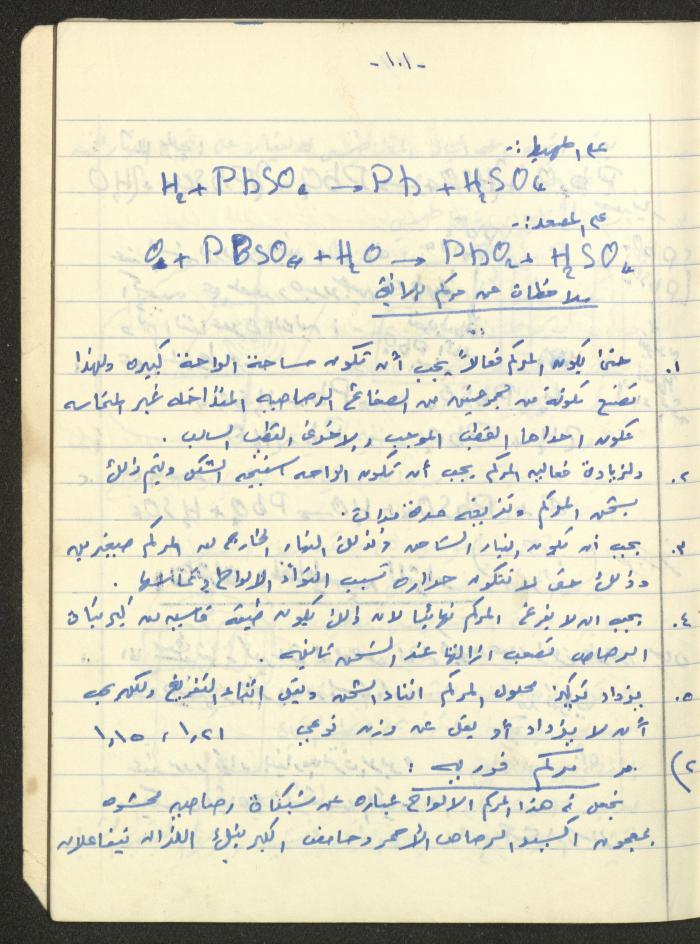 -١٠١-
على المهبط :-
H₂ + PbSO₄ → Pb + H₂SO₄
على المصعد :-
O₂ + PbSO₄ + H₂O → PbO₂ + H₂SO₄
ملاحظات عن مركم بلانتي
١. حتى يكون المركم فعالاً يجب أن تكون مساحة الواحة كبيره ولهذا
تصنع مكونه من مجموعتين من الصفائح الرصاصيه المتداخله غير المتماسه
تكون احداها القطب الموجب والاخرى القطب السالب .
٢. ولزيادة فعاليه المركم يجب أن تكون الواحه اسفنجيه الشكل ويتم ذلك
بشحن المركم وتفريغه عدة مرات .
٣. يجب أن يكون التيار الشاحن وكذلك التيار الخارج من المركم صغيرين
وذلك حتى لا تتكون حراره تسبب التواء الالواح و
٤. يجب ان لا يفرغ المركم نهائيا لان ذلك يكون طبقه قاسيه من كبريتات
الرصاص تصعب ازالتها عند الشحن ثانيه .
٥. يزداد تركيز محلول المركم اثناء الشحن ويقل اثناء التفريغ ولكن يجب
أن لا يزداد أو يقل عن وزن نوعي ١,٢١ ، ١,١٥
٢) مركم فور :
تجعل في هذا المركم الالواح عباره عن شبكات رصاصيه محشوه
بمعجون اكسيد الرصاص الأحمر وحامض الكبريتيك اللذان يتفاعلان